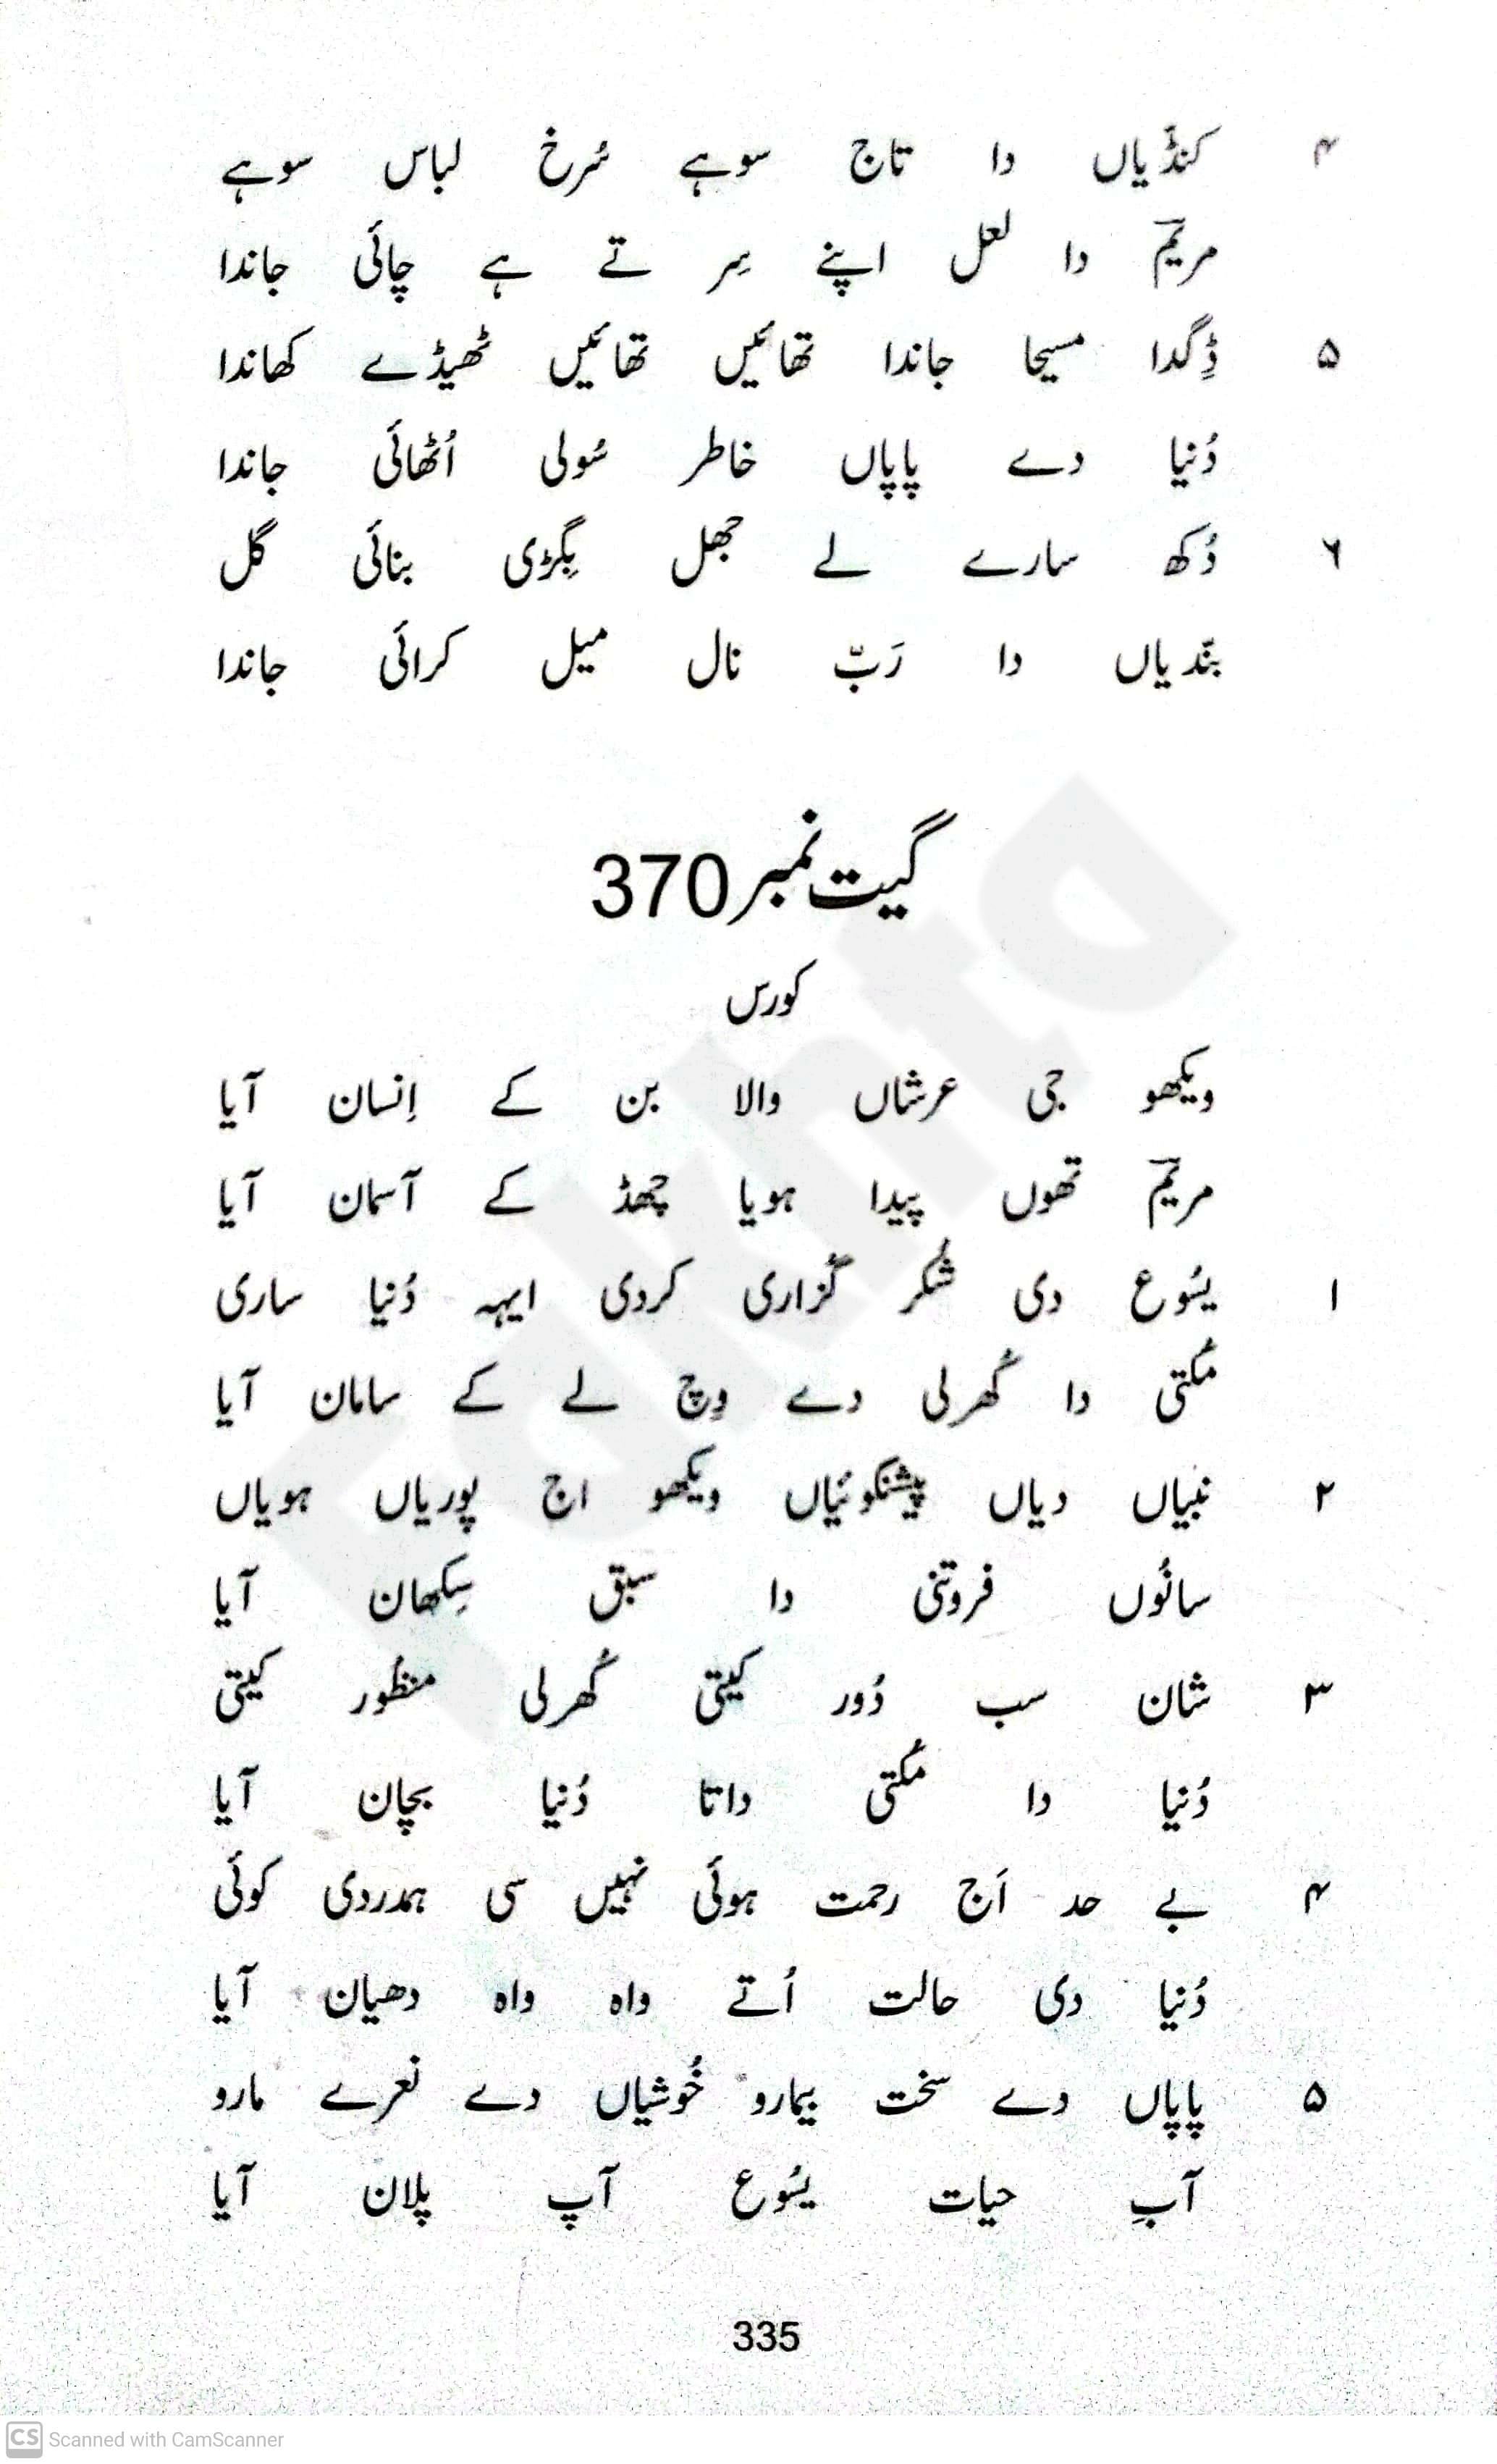 ۴ کنڈیاں دا تاج سوہے سُرخ لباس سوہے
مریمؔ دا لعل اپنے سِر تے ہے چائی جاندا
۵ ڈِگدا مسیحا جاندا تھائیں تھائیں ٹھیڈے کھاندا
دُنیا دے پاپاں خاطر سُولی اُٹھائی جاندا
۶ دُکھ سارے لے جھل بِگڑی بنائی گل
بنّدیاں دا رَبّ نال میل کرائی جاندا
گیت نمبر 370
کورس
ویکھو جی عرشاں والا بن کے اِنسان آیا
مریمؔ تھوں پیدا ہویا چھڈ کے آسمان آیا
۱ یسُوع دی شُکر گُزاری کردی ایہہ دُنیا ساری
مُکتی دا کُھرلی دے وِچ لے کے سامان آیا
۲ نبیاں دیاں پیشنگوئیاں ویکھو اج پوریاں ہویاں
سانُوں فروتنی دا سبق سِکھان آیا
۳ شان سب دُور کیتی کُھرلی منظُور کیتی
دُنیا دا مُکتی داتا دُنیا بچان آیا
۴ بے حد اَج رحمت ہوئی نہیں سی ہمدردی کوئی
دُنیا دی حالت اُتے واہ واہ دھیان آیا
۵ پاپاں دے سخت بیمارو خُوشیاں دے نعرے مارو
آبِ حیات یسُوع آپ پلان آیا
335
CS Scanned with CamScanner
Fakhta